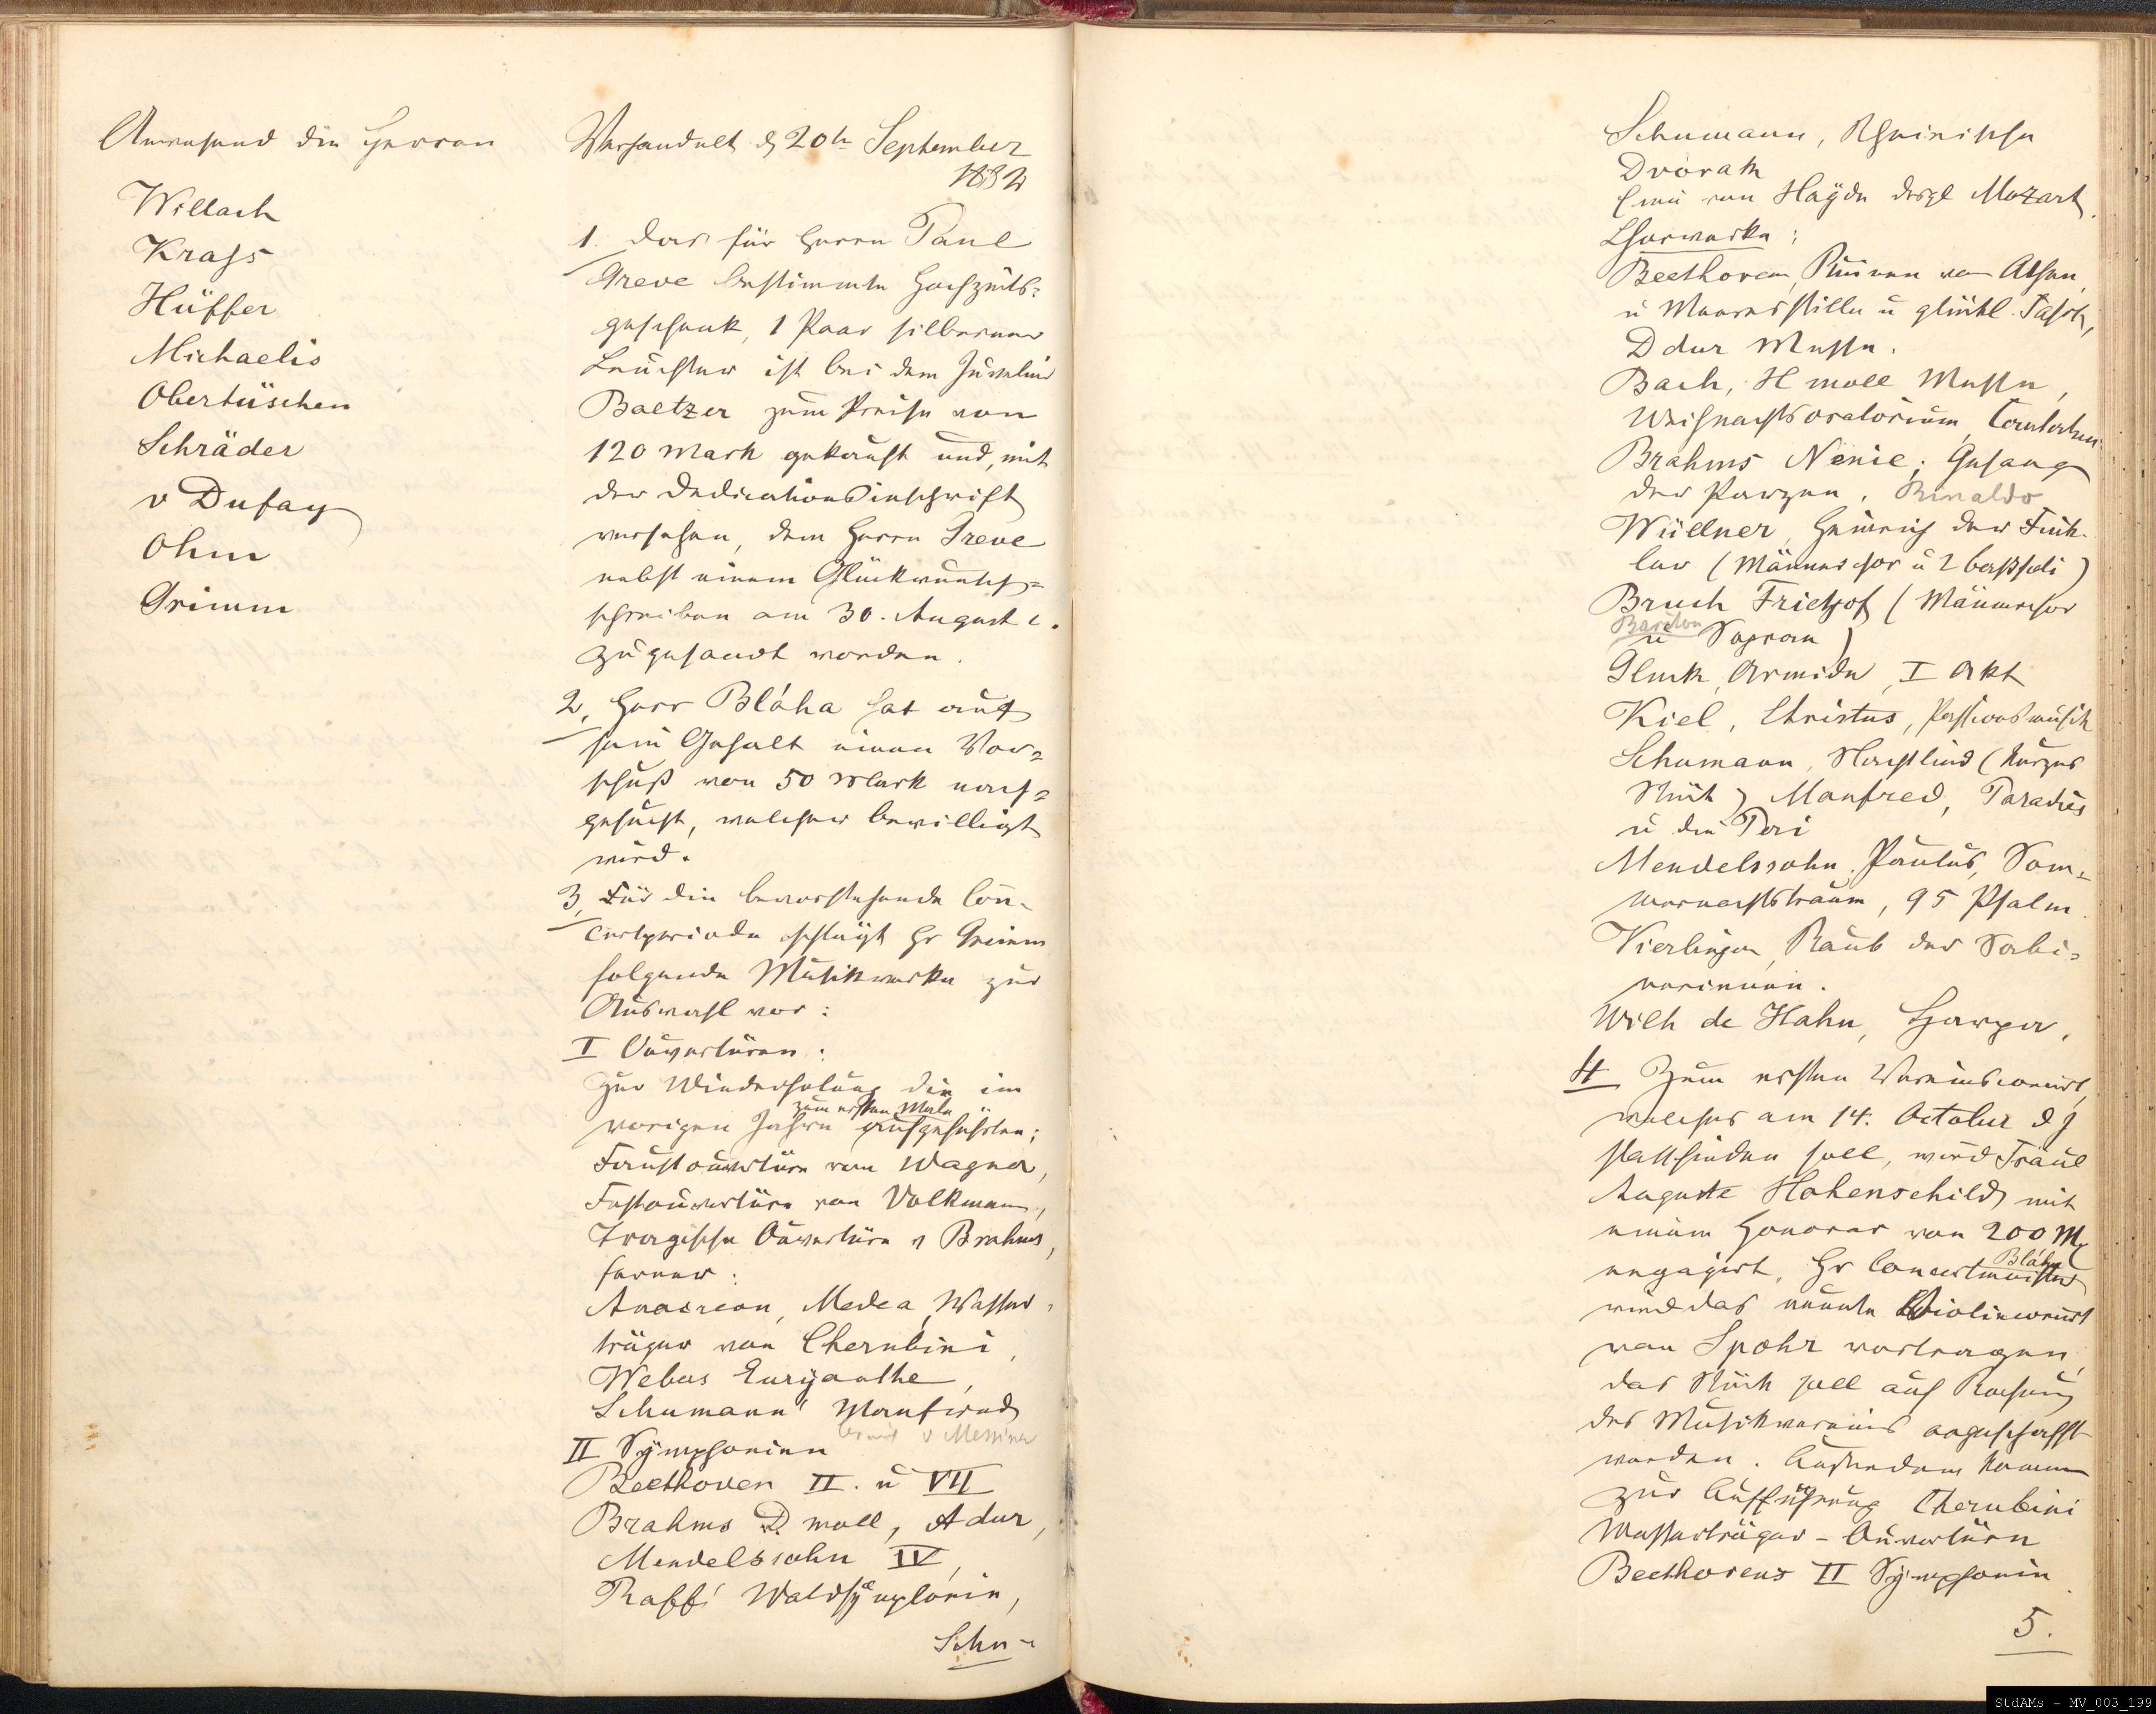 Anwesend die Herren
Willach
Krass
Hüffer
Michaelis
Obertüschen
Schräder
v Dufay
Ohm
Grimm
Verhandelt d 20te September
1882
1. Das für Herrn Paul
Greve bestimmte Hochzeits-
geschenk, 1 Paar silberner
Leuchter ist bei dem Juvelier
Baltzer zum Preise von
120 Mark gekauft und, mit
der Dedicationsinschrift
versehen, dem Herrn Greve
nebst einem Glückwunsch-
schreiben am 30. August c.
zugesandt worden.
2, Herr Bláha hat auf
sein Gehalt einen Vor-
schuß von 50 Mark nach-
gesucht, welcher bewilligt
wird.
3, Für die bevorstehende Con-
certperiode schlägt Hr Grimm
folgende Musikwerke zur
Auswahl vor:
I Ouverturen:
Zur Wiederholung die im
zum ersten Male
vorigen Jahre aufgeführten:
Faustouverture von Wagner,
Festouverture von Volkmann,
Tragische Ouverture v Brahms,
ferner:
Anacreon, Medea, Wasser-
träger von Cherubini,
Webers Euryanthe,
Schumann Manfred,
Braut v Messina
II Symphonien
Beethoven II. u VII
Brahms D moll, A dur,
Mendelssohn IV,
Raff Waldsymphonie,
Schu-
Schumann, Rheinische
Dvorak
Eine von Haydn desgl Mozart.
Chorwerke:
Beethoven, Ruinen von Athen,
u Meeresstille u glückl. Fahrt,
D dur Messe.
Bach, H moll Messe,
Weihnachtsoratorium, Cantaten.
Brahms Nänie; Gesang
der Parzen, Rinaldo
Wüllner, Heinrich der Fink-
ler (Männerchor u 2 Baßsoli)
Bruch Frietjof (Männerchor
Bariton
u Sopran)
Gluck, Armide, I Akt
Kiel, Christus, Passionsmusik
Schumann, Nachtlied (kurzes
Stück) Manfred, Paradies
u die Peri
Mendelssohn, Paulus, Som-
mernachtstraum, 95 Psalm
Vierlingen, Raub der Sabi-
nerinnen.
Wilh de Hahn, Harpa.
4 Zum ersten Vereinsconcert,
welches am 14. October d J
stattfinden soll, wird Fräul
Auguste Hohenschild mit
einem Honorar von 200 M
engagirt, Hr Concertmeister
Bláha
wird das neunte Violinconcert
von Spohr vortragen,
das Stück soll auf Rechnung
des Musikvereins angeschafft
werden. Außerdem kommen
zur Aufführung Cherubini
Wasserträger-Ouverture
Beethovens II Symphonie.
5.
StdAMs - MV_003_199